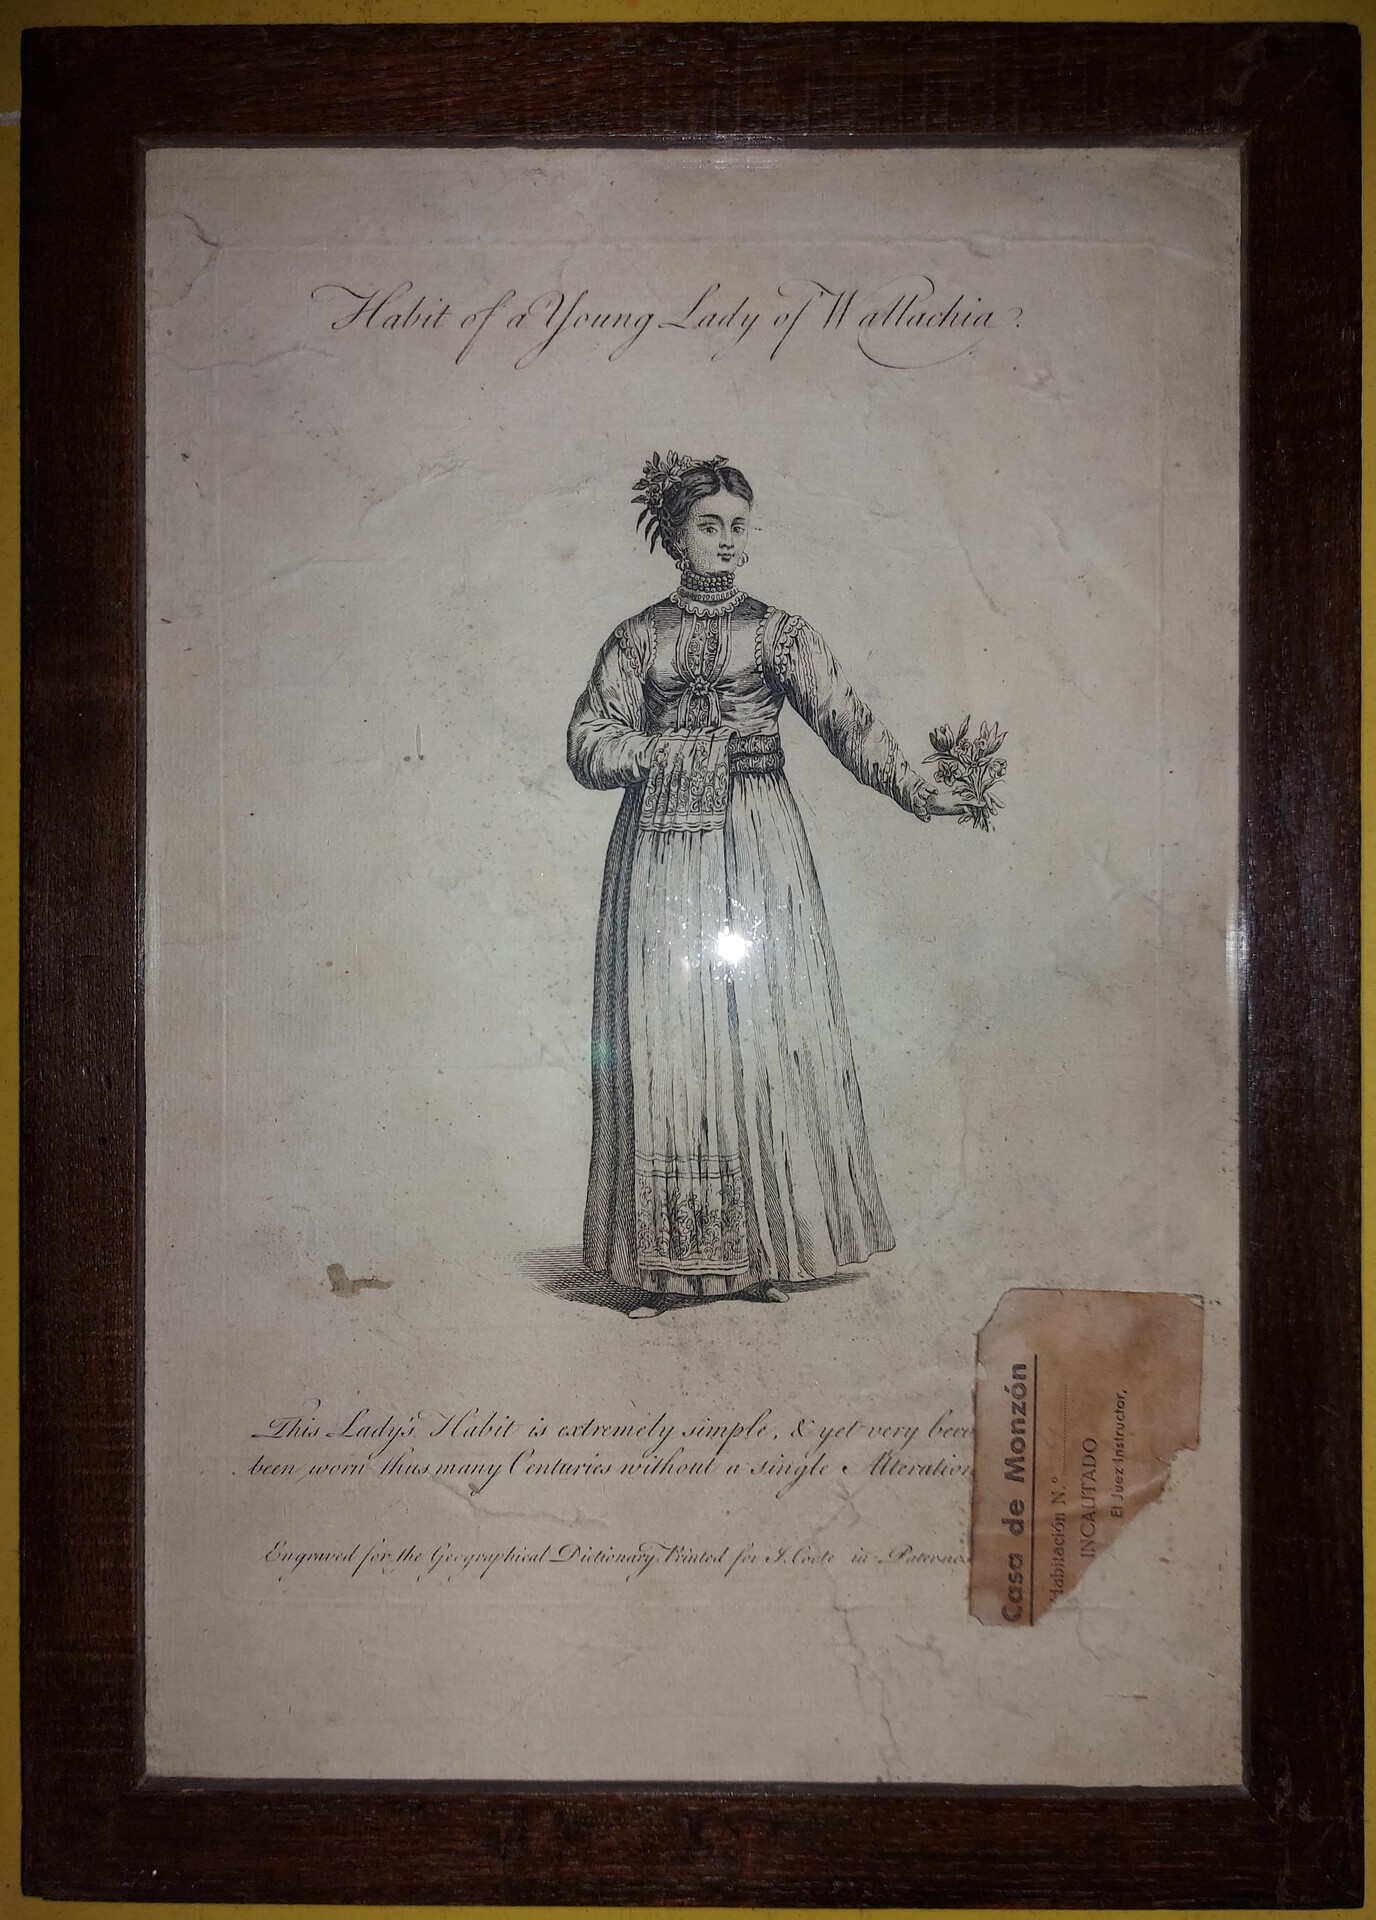 Habit of a Young Lady of Wallachia.
This Lady's Habit is extremely simple, & yet very beco
been worn thus many Centuries without a single Alteration
Engraved for the Geographical Dictionary, Printed for J. Coote in Paternos
Casa de Monzón
Habitación N.º
INCAUTADO
El Juez Instructor,